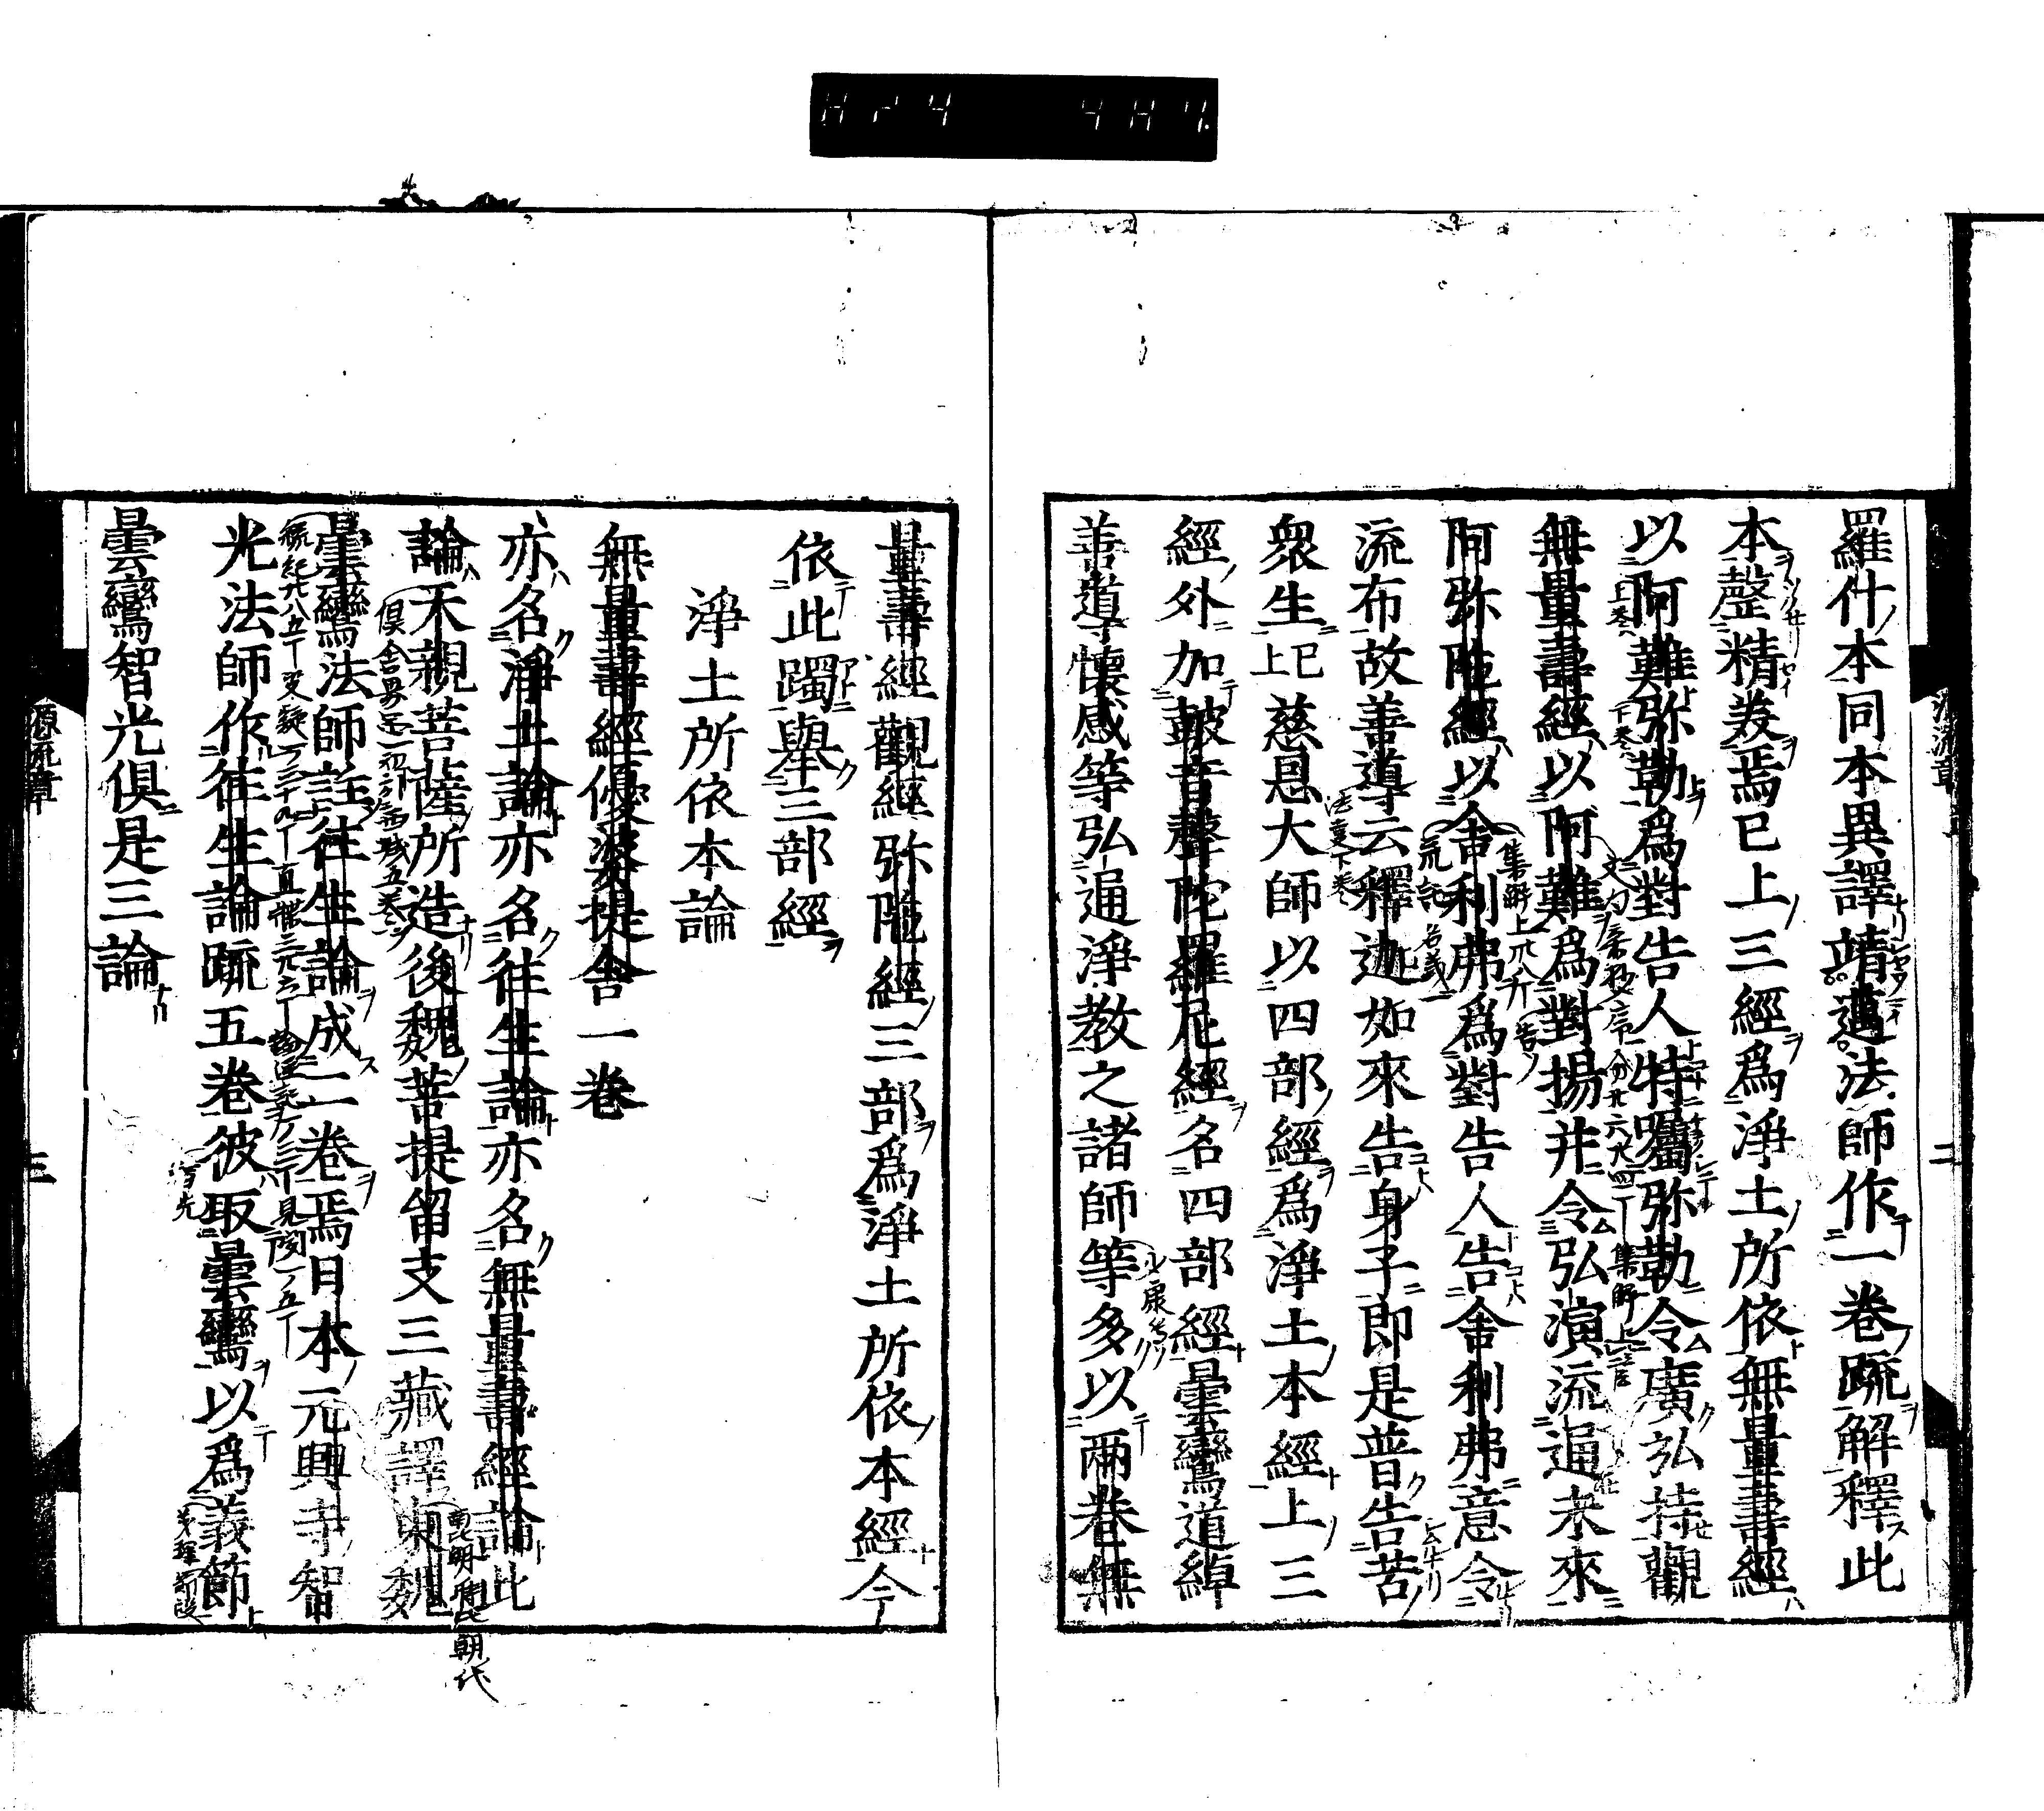 羅什本同本異譯靖邁法師作一卷疏解釋此
本磬精義焉已上三經爲淨土所依無量壽經
以阿難弥勒爲對告人特囑弥勒令廣弘持觀
無量壽經以阿難爲對揚并令弘演流通未來
阿弥陀經以舍利弗爲對告人告舍利弗意令
流布故善導云釋迦如來告身子即是普告苦
衆生已上慈恩大師以四部經爲淨土本經上三
經外加鼓音聲陀羅尼經名四部經曇鸞道綽
善導懷感等弘通淨教之諸師等多以兩卷無
量壽經觀經弥陀經三部爲淨土所依本經今
依此躅舉三部經
淨土所依本論
無量壽經優婆提舍一卷
亦名淨土論亦名往生論亦名無量壽經論此
論天親菩薩所造後魏菩提留支三藏譯東魏
曇鸞法師註往生論成二卷焉日本元興寺智
光法師作往生論疏五卷彼取曇鸞以爲義節
曇鸞智光俱是三論
源流章
二
三
上卷
下卷
法事下卷
俱舍
朝代